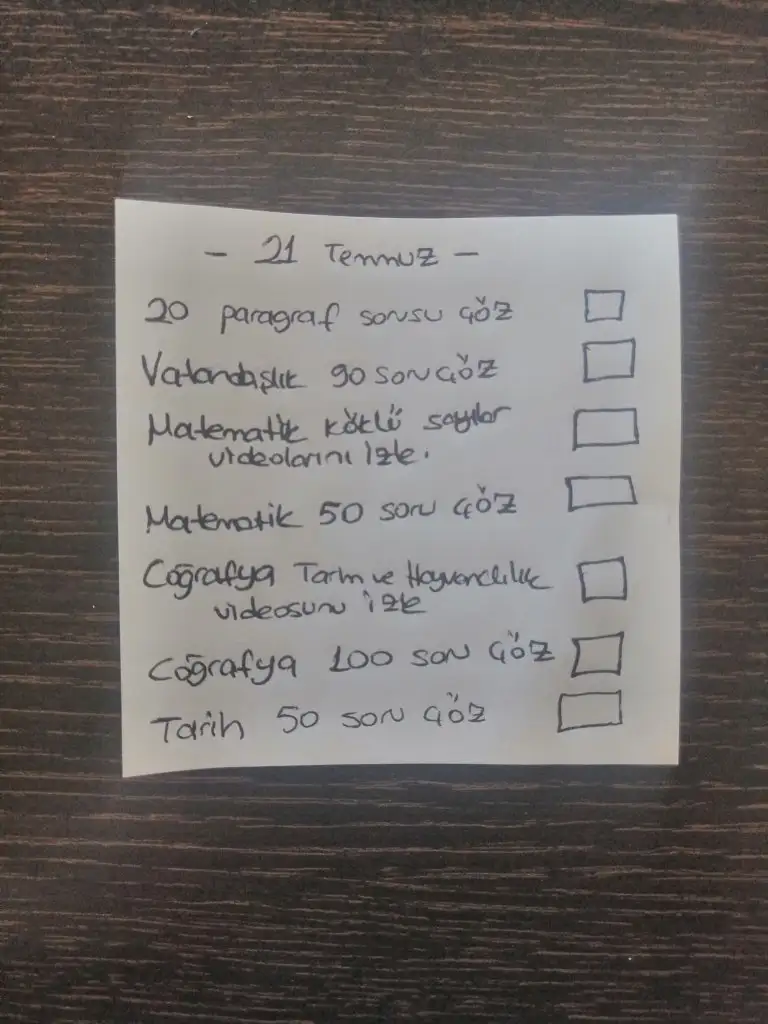 - 21 Temmuz -
20 paragraf sorusu çöz
Vatandaşlık 90 soru çöz
Matematik köklü sayılar
videolarını izle.
Matematik 50 soru çöz
Coğrafya Tarım ve Hayvancılık
videosunu izle
Coğrafya 100 soru çöz
Tarih 50 soru çöz